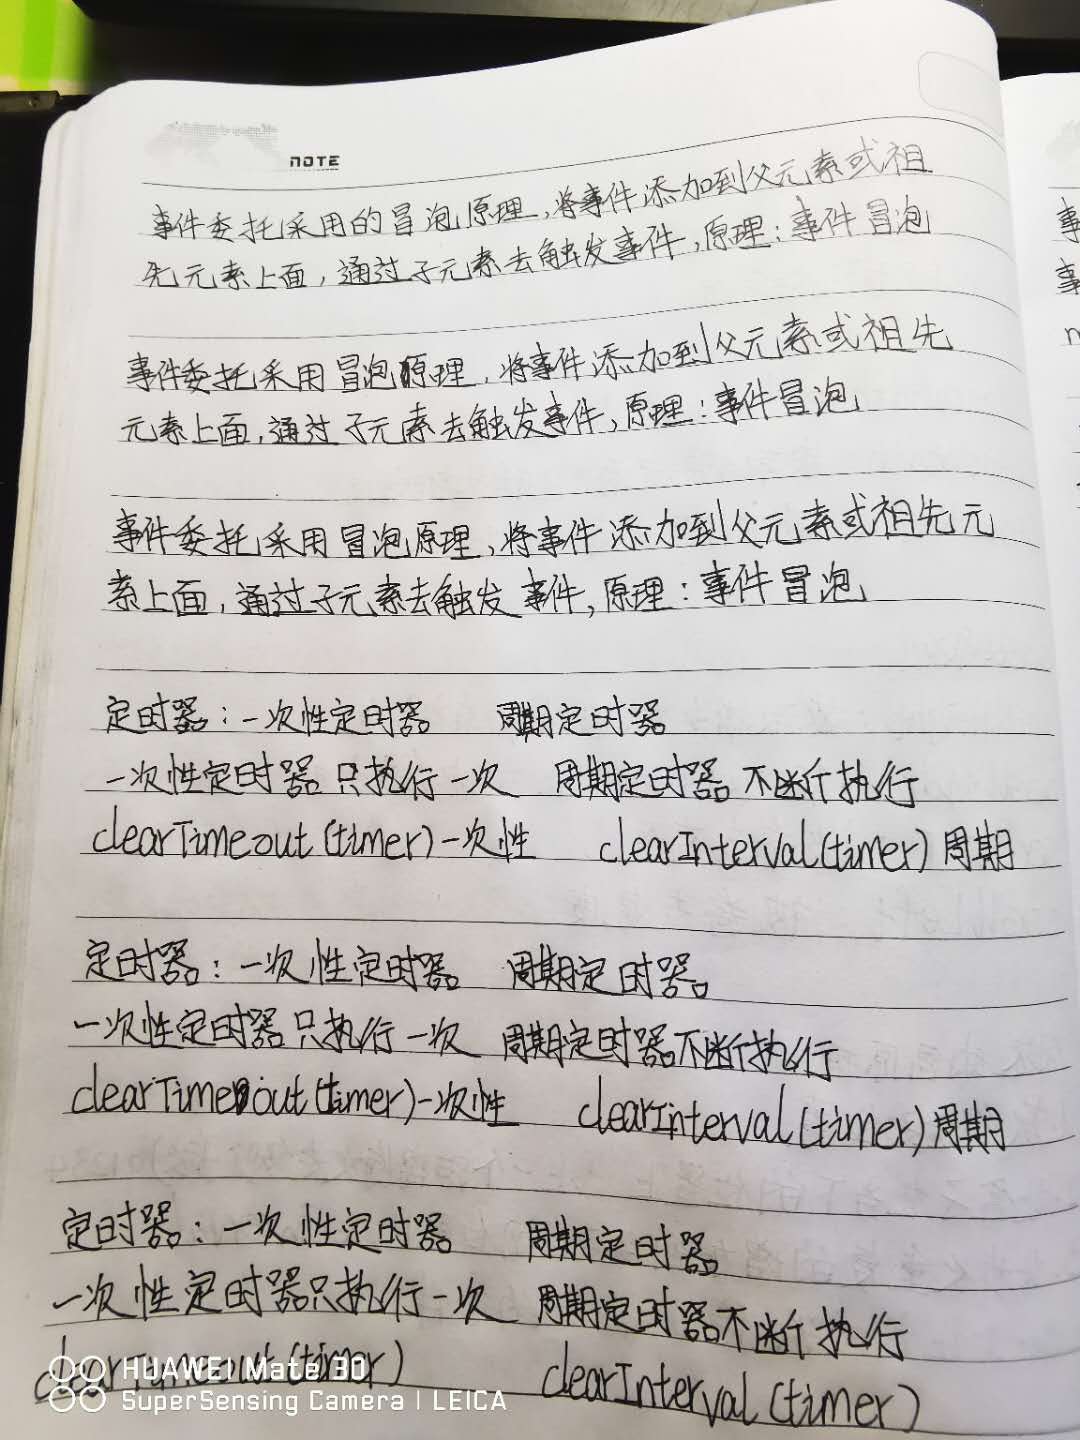 NOTE
事件委托采用的冒泡原理,将事件添加到父元素或祖
先元素上面,通过子元素去触发事件,原理:事件冒泡
事件委托采用冒泡原理,将事件添加到父元素或祖先
元素上面,通过子元素去触发事件,原理:事件冒泡
事件委托采用冒泡原理,将事件添加到父元素或祖先元
素上面,通过子元素去触发事件,原理:事件冒泡
定时器:一次性定时器 周期定时器
一次性定时器只执行一次 周期定时器不断执行
clearTimeout(timer)一次性 clearInterval(timer)周期
定时器:一次性定时器 周期定时器
一次性定时器只执行一次 周期定时器不断执行
clearTimeout(timer)一次性 clearInterval(timer)周期
定时器:一次性定时器 周期定时器
一次性定时器只执行一次 周期定时器不断执行
clearTimeout(timer) clearInterval(timer)
HUAWEI Mate 30
SuperSensing Camera | LEICA
事
事